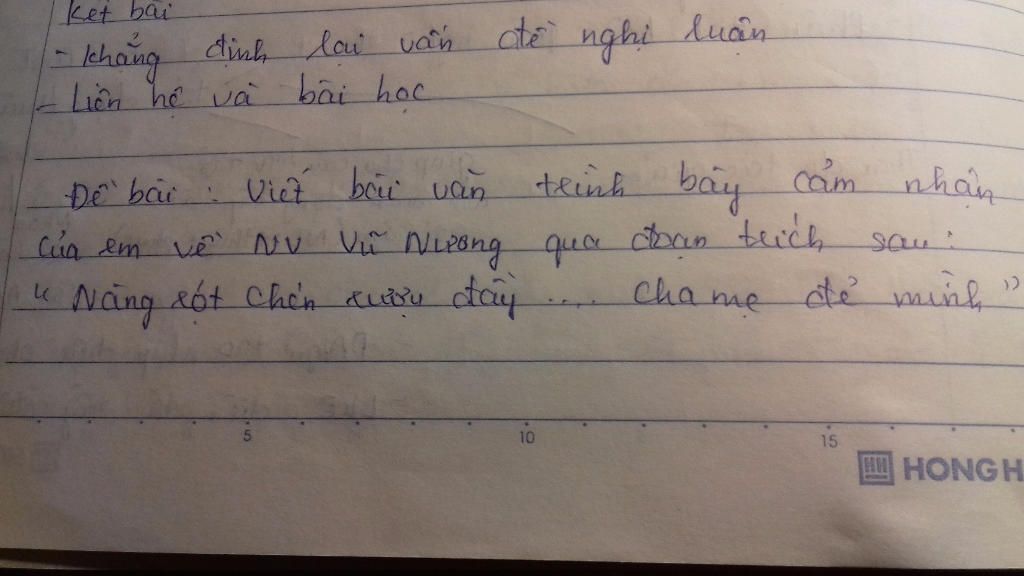 Kết bài
- Khẳng định lại vấn đề nghị luận
- Liên hệ và bài học
Đề bài : Viết bài văn trình bày cảm nhận
của em về NV Vũ Nương qua đoạn trích sau :
" Nàng rót chén rượu đầy .... cha mẹ đẻ mình "
5 10 15
HONG H